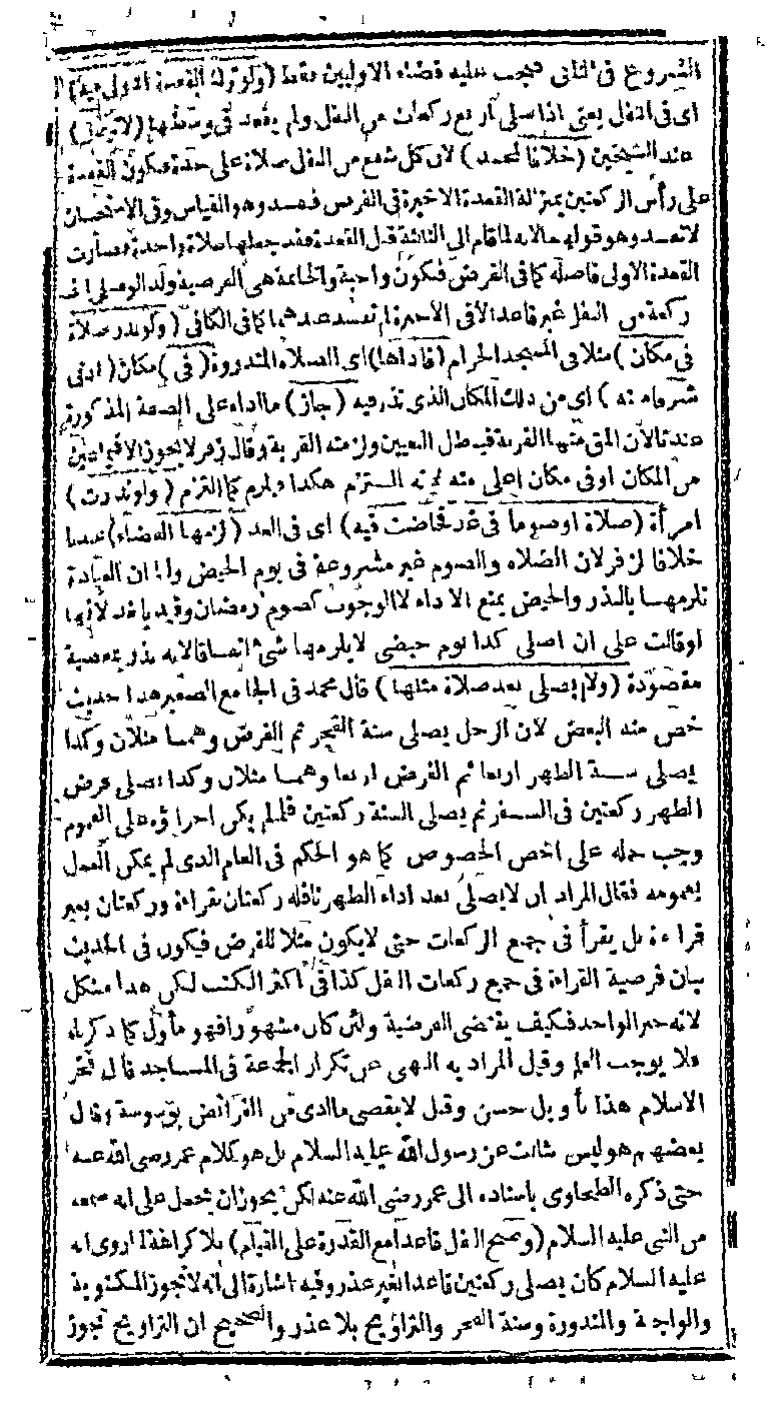 الشروع في الثاني فيجب عليه قضاء الاوليين فقط (ولو ترك القعدة الاولى فيه)
اى فى النفل يعنى اذا صلى اربع ركعات من النفل ولم يقعد فى وسطها (لا تبطل)
عند الشيخين (خلافا لمحمد) لان كل شفع من النفل صلاة على حدة فتكون القعدة
على رأس الركعتين بمنزلة القعدة الاخيرة فى الفرض فتفسد وهو القياس وفى الاستحسان
لا تفسد وهو قولهما لانه لما قام الى الثالثة قبل القعدة فقد جعلها صلاة واحدة فصارت
القعدة الاولى فاصلة كما فى الفرض فتكون واجبة والخاتمة هى الفرضية ولو صلى الف
ركعة من النفل غير قاعد الا فى الاخيرة لم تفسد عندهما كما فى الكافى (ولو نذر صلاة
فى مكان) مثلا فى المسجد الحرام (فاداها) اى الصلاة المنذورة (فى) مكان (ادنى
شرفا منه) اى من ذلك المكان الذى نذر فيه (جاز) ما اداه على الصفة المذكورة
عندنا لان المق منها القربة فبطل التعيين ولزمته القربة وقال زفر لا يجوز الا فيما عين
من المكان او فى مكان اعلى منه لانه التزم هكذا فيلزم كما التزم (ولو نذرت)
امرأة (صلاة او صوما فى غد فحاضت فيه) اى فى الغد (لزمها القضاء) عندنا
خلافا لزفر لان الصلاة والصوم غير مشروعة فى يوم الحيض ولنا ان العبادة
تلزمها بالنذر والحيض يمنع الاداء لا الوجوب كصوم رمضان وقيد بالغد لانها
لو قالت على ان اصلى كذا يوم حيضى لا يلزمها شئ اتفاقا لانه نذر بمعصية
مقصودة (ولا يصلى بعد صلاة مثلها) قال محمد فى الجامع الصغير هذا حديث
خص منه البعض لان الرجل يصلى سنة الفجر ثم الفرض وهما مثلان وكذا
يصلى سنة الظهر اربعا ثم الفرض اربعا وهما مثلان وكذا يصلى فرض
الظهر ركعتين فى السفر ثم يصلى السنة ركعتين فلما لم يكن اجراؤه على العموم
وجب حمله على اخص الخصوص كما هو الحكم فى العام الذى لم يمكن العمل
بعمومه فقال المراد ان لا يصلى بعد اداء الظهر نافلة ركعتان بقراءة وركعتان بغير
قراءة بل يقرأ فى جميع الركعات حتى لا يكون مثلا للفرض فيكون فى الحديث
بيان فرضية القراءة فى جميع ركعات النفل كذا فى اكثر الكتب لكن هذا مشكل
لانه خبر الواحد فكيف يقتضى الفرضية ولئن كان مشهورا فهو مأول كما ذكرناه
فلا يوجب العلم وقيل المراد به النهى عن تكرار الجمعة فى المساجد قال فخر
الاسلام هذا تأويل حسن وقيل لا يقضى ما ادى من الفرائض بوسوسة وقال
بعضهم هو ليس بثابت عن رسول الله عليه السلام بل هو كلام عمر رضى الله عنه
حتى ذكره الطحاوى باسناده الى عمر رضى الله عنه لكن يجوز ان يحمل على انه سمعه
من النبى عليه السلام (وصح النفل قاعدا مع القدرة على القيام) بلا كراهة لما روى انه
عليه السلام كان يصلى ركعتين قاعدا لغير عذر وفيه اشارة الى انه لا تجوز المكتوبة
والواجبة والمنذورة وسنة الفجر والتراويح بلا عذر والصحيح ان التراويح تجوز